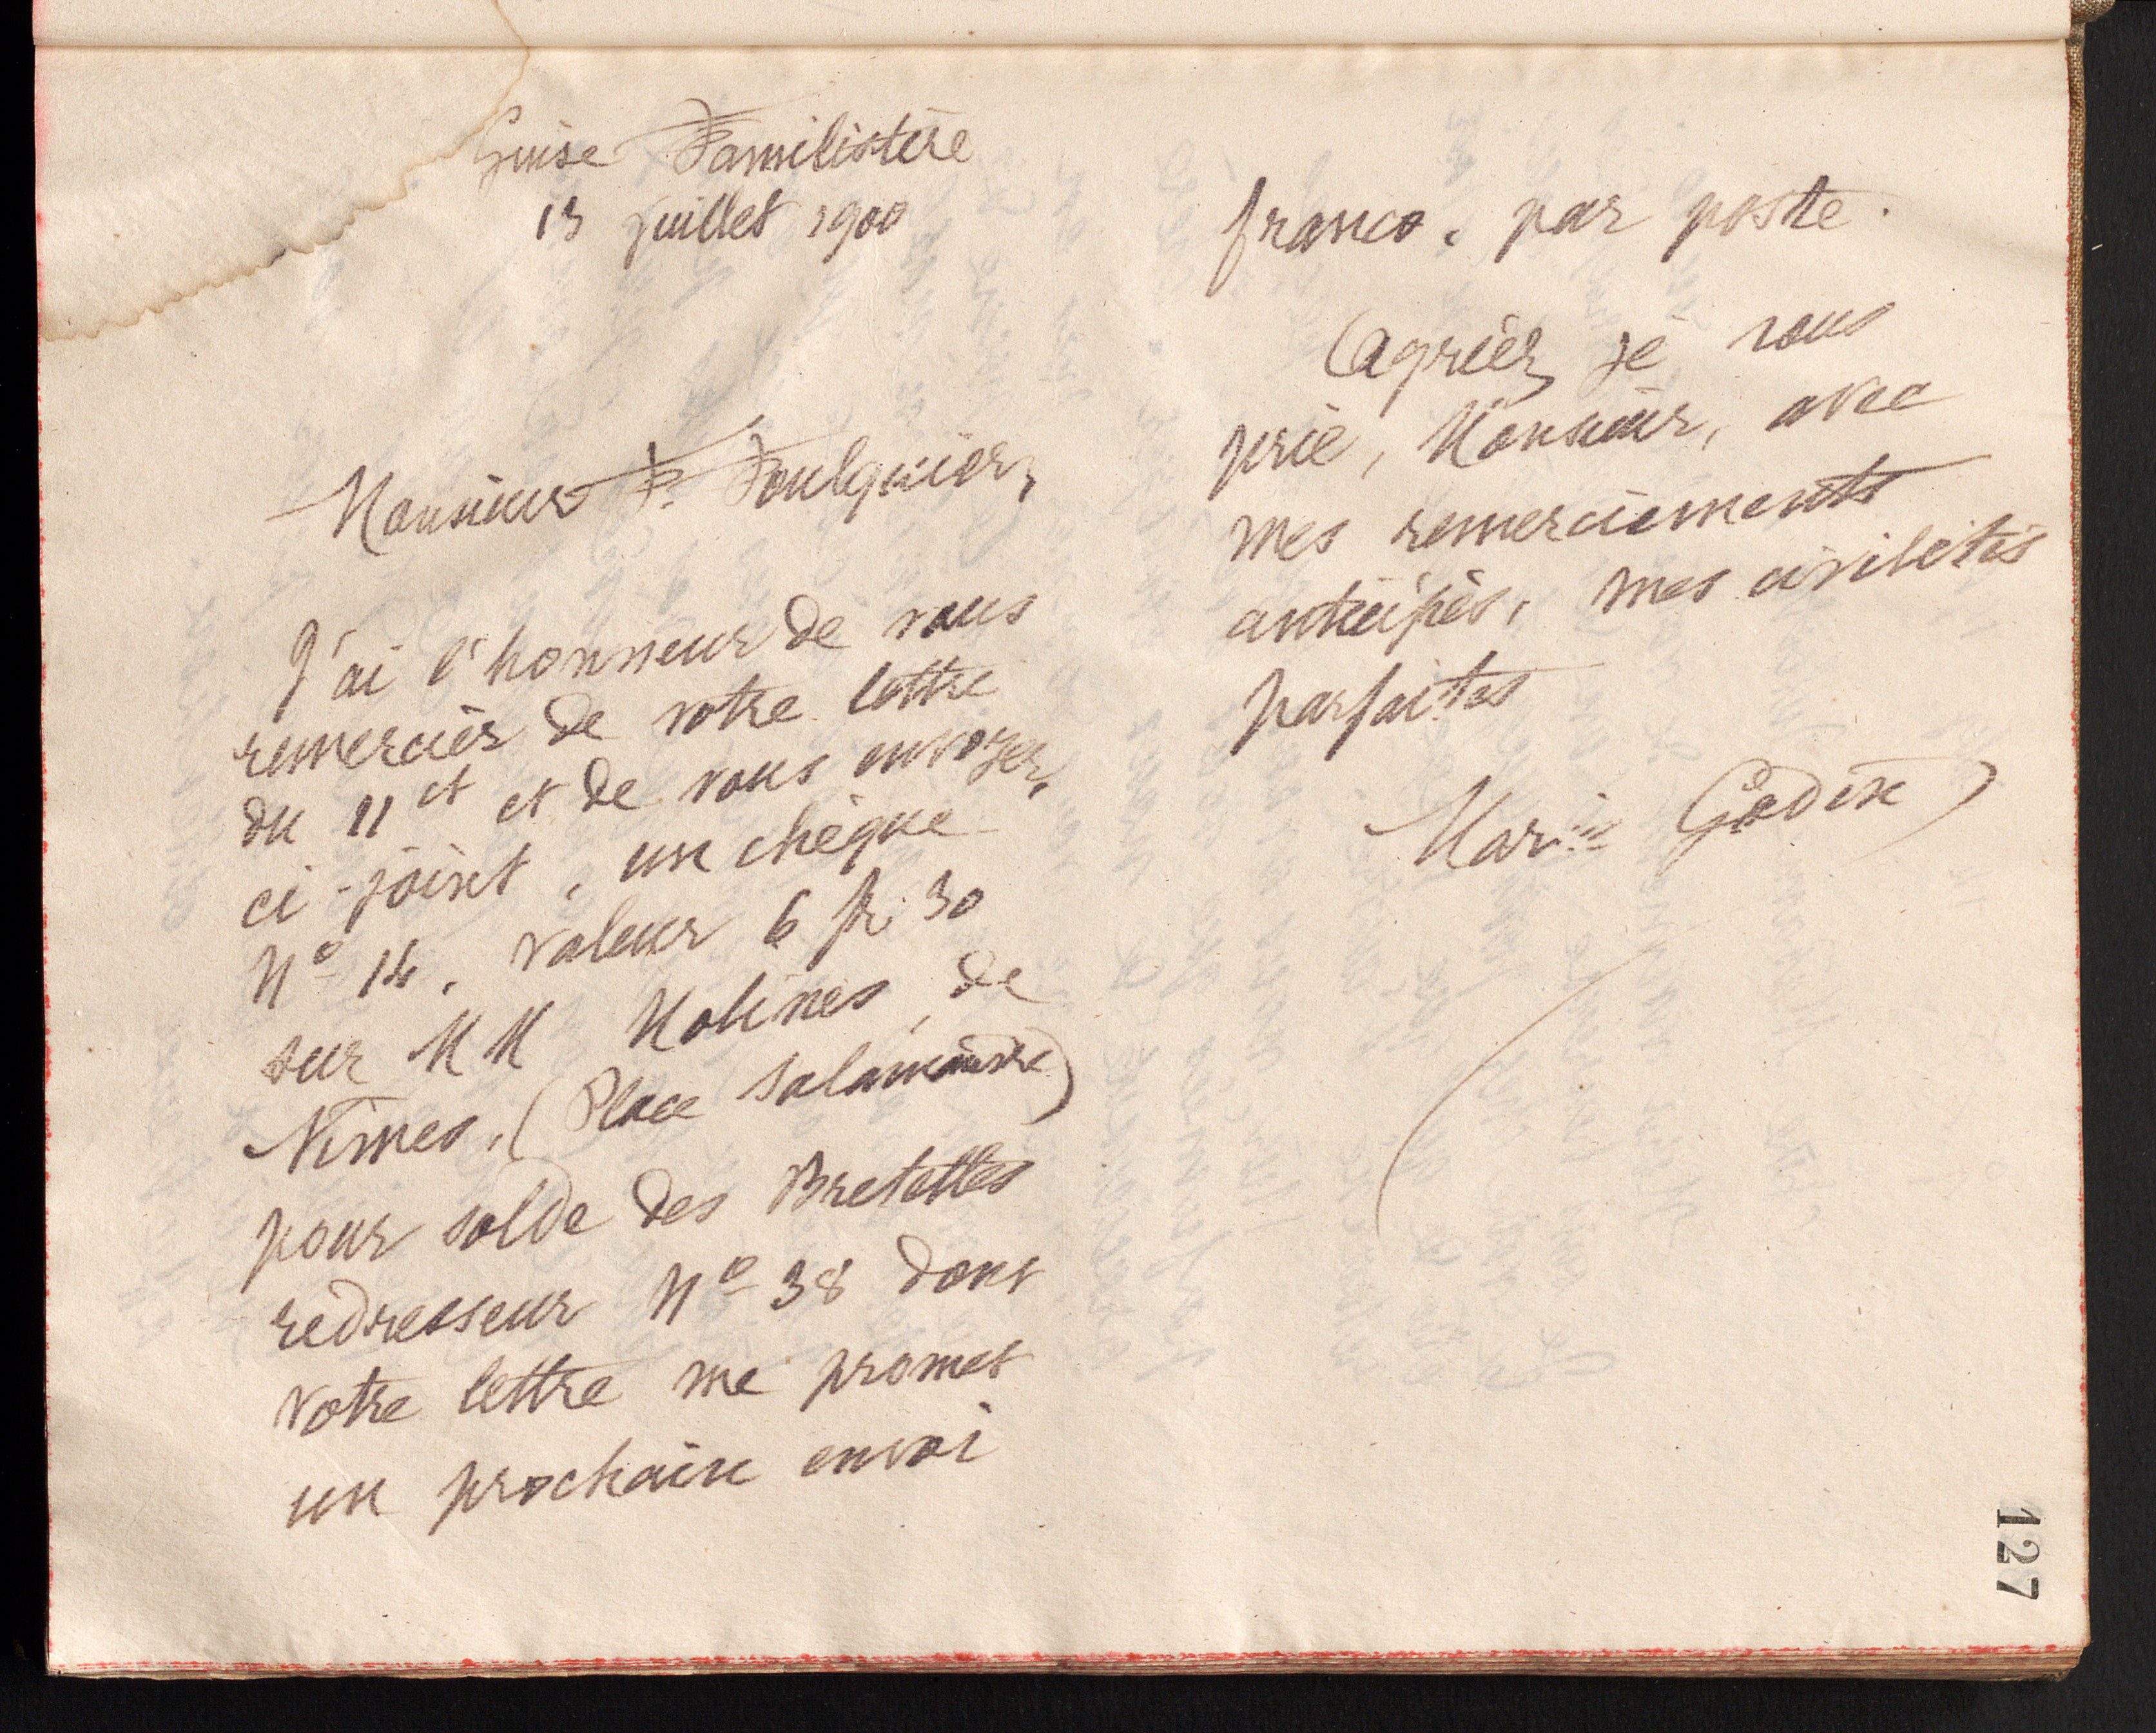 Guise Familistère
13 juillet 1900
Monsieur F. Foulquier,
J'ai l'honneur de vous
remercier de votre lettre
du 11 ct et de vous envoyer,
ci-joint, un chèque
Nº 14, valeur 6 fr. 30
sur MM Molines, de
Nîmes, (Place Salamandre)
pour solde des Bretelles
redresseur Nº 38 dont
votre lettre me promet
un prochain envoi
franco, par poste.
Agréez, je vous
prie, Monsieur, avec
mes remerciements
anticipés, mes civilités
parfaites
Marie Godin
127